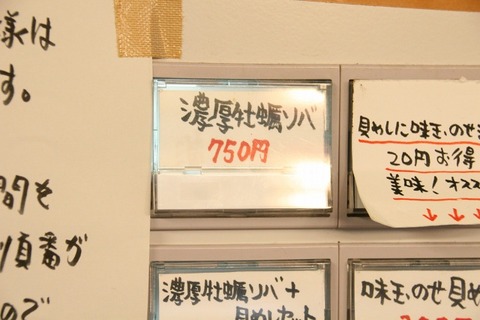 様は
す。
間も
順番が
ので
濃厚牡蠣ソバ
750円
貝めしに味玉のせ
20円お得
美味!オスス
↓↓↓
濃厚牡蠣ソバ+
貝めしセット
味玉のせ貝め